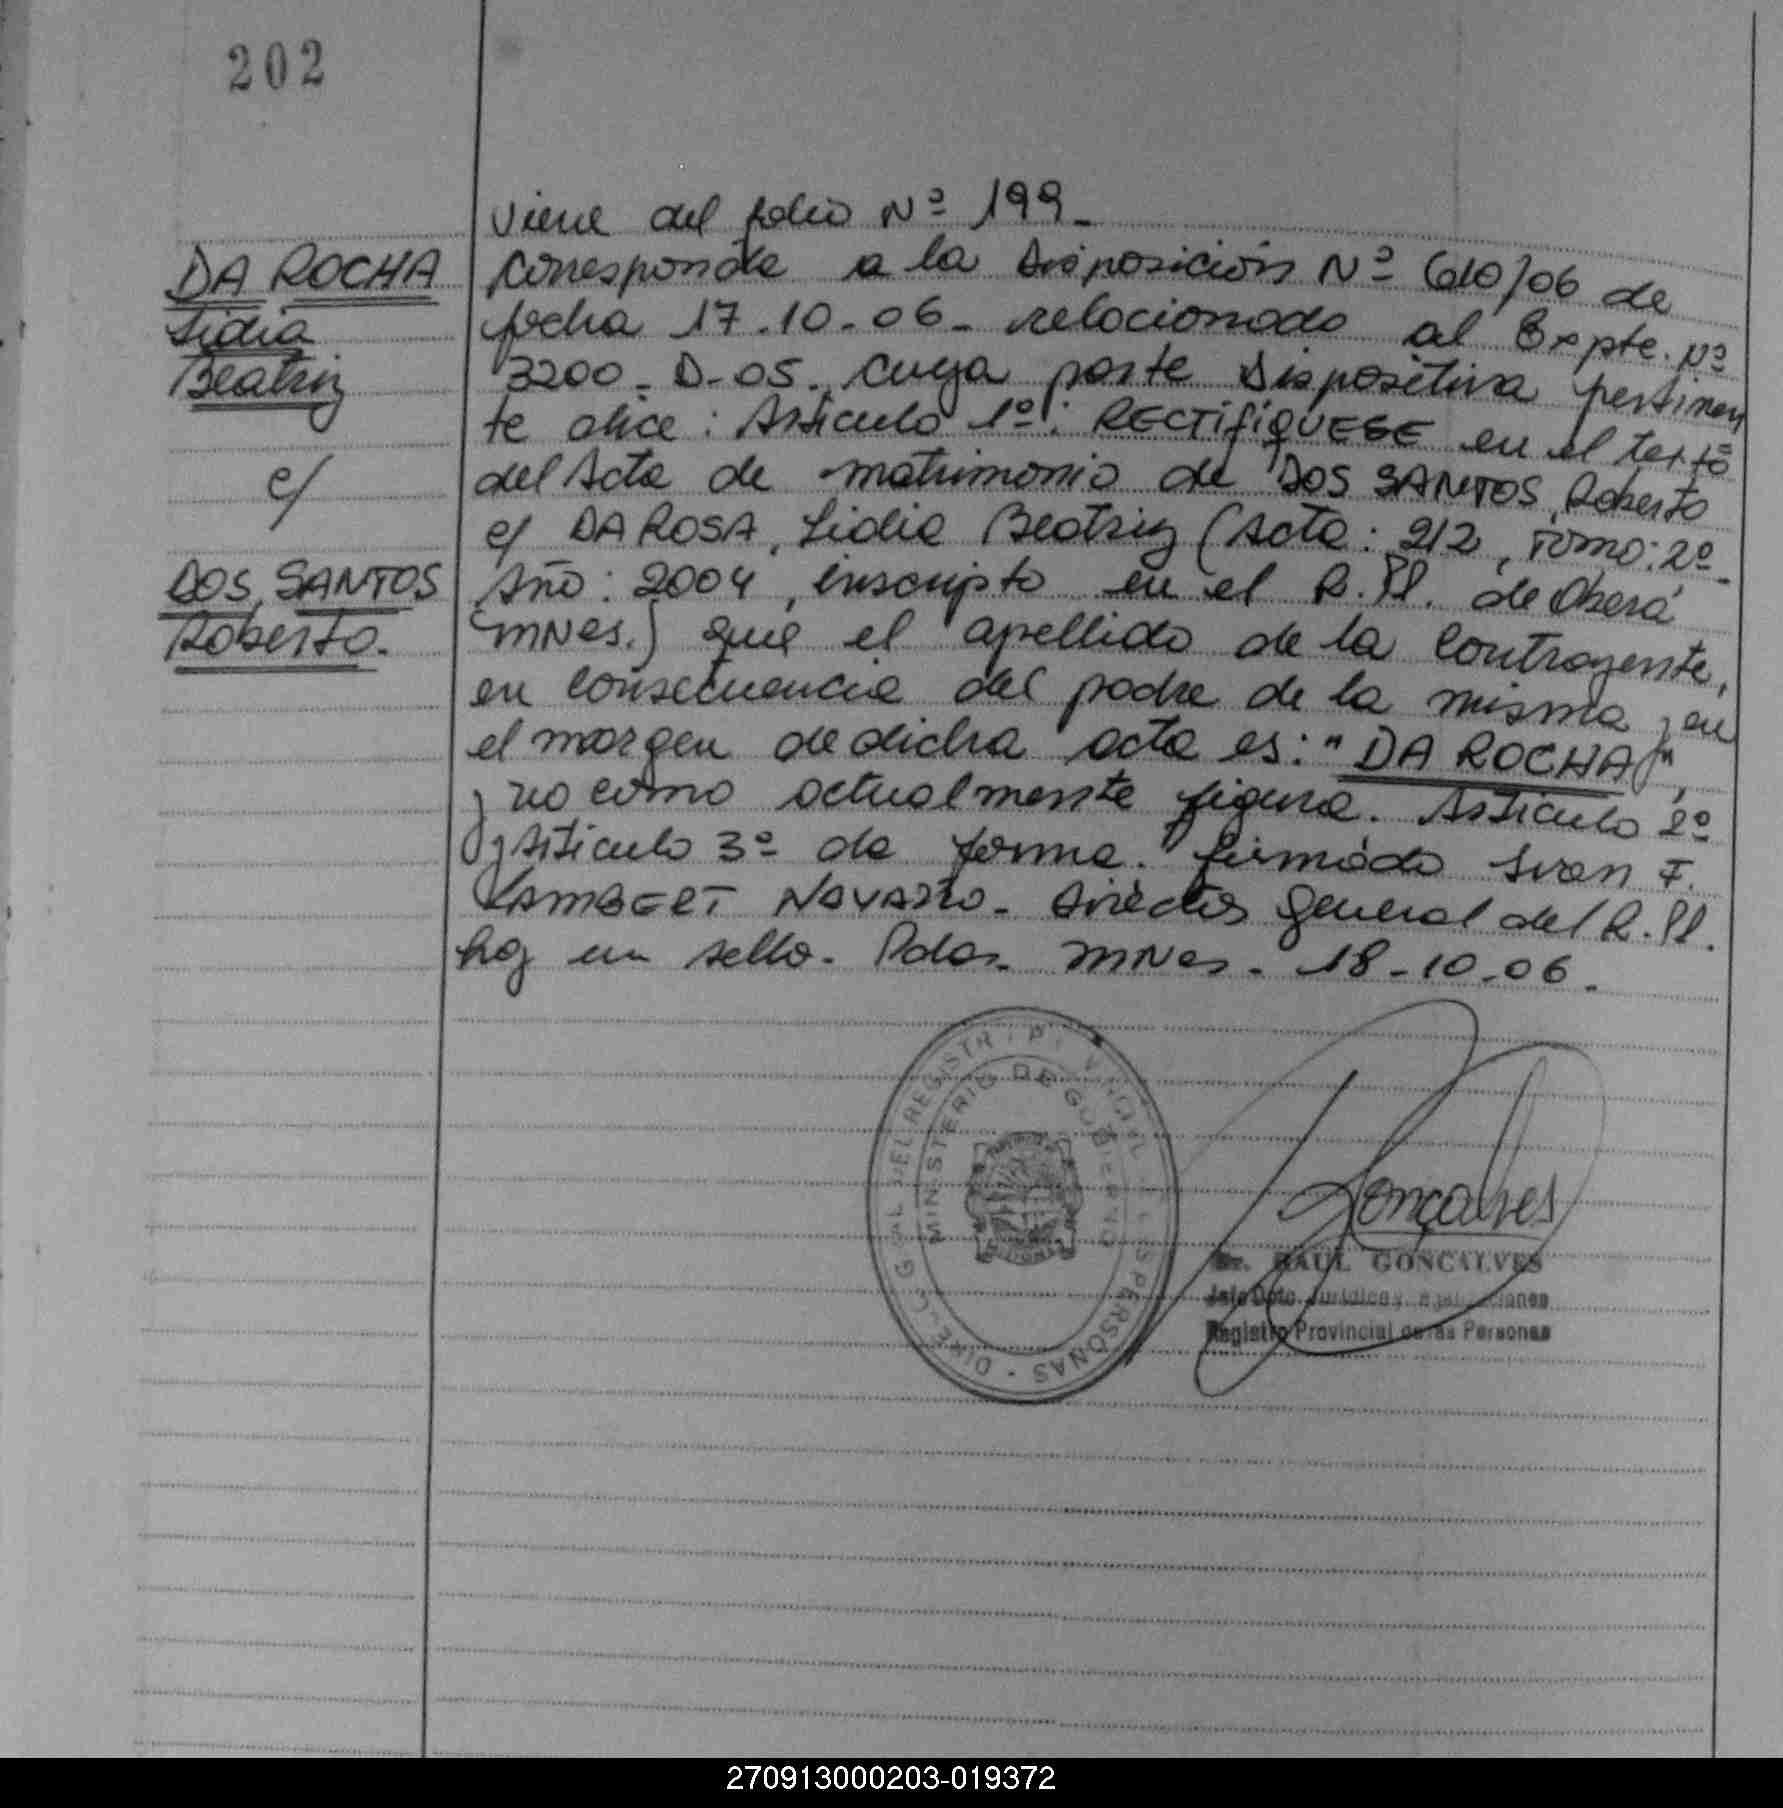 202
Viene del folio Nº 199_
DA ROCHA
Lidia
Beatriz
c/
DOS SANTOS
Roberto.
Corresponde a la Disposición Nº 610/06 de
fecha 17-10-06_ relacionado al Expte. Nº
3200_D-05., cuya parte Dispositiva pertinen
te dice: Articulo 1º: RECTIFIQUESE en el texto
del Acta de matrimonio de DOS SANTOS, Roberto
c/ DA ROSA, Lidia Beatriz (Acta: 212, Tomo: 2º_
Año: 2004, inscripto en el R.Pl. de Oberá
MNes.) que el apellido de la contrayente,
en consecuencia del padre de la misma y en
el margen de dicha acta es: "DA ROCHA",
y no como actualmente figura. Articulo 2º
y Articulo 3º de forma. firmado Ivan F.
LAMBERT NAVARRO_ Director General del R.Pl.
hay un sello_ Pdas_ MNes_ 18-10-06_
DIREC. GRAL DEL REGISTR PR VINCIAL LAS PERSONAS
MINISTERIO DE GOBIERNO
MISIONES
Gonçalves
Dr. RAUL GONCALVES
Jefe Dpto
Registro Provincial de las Personas
270913000203-019372